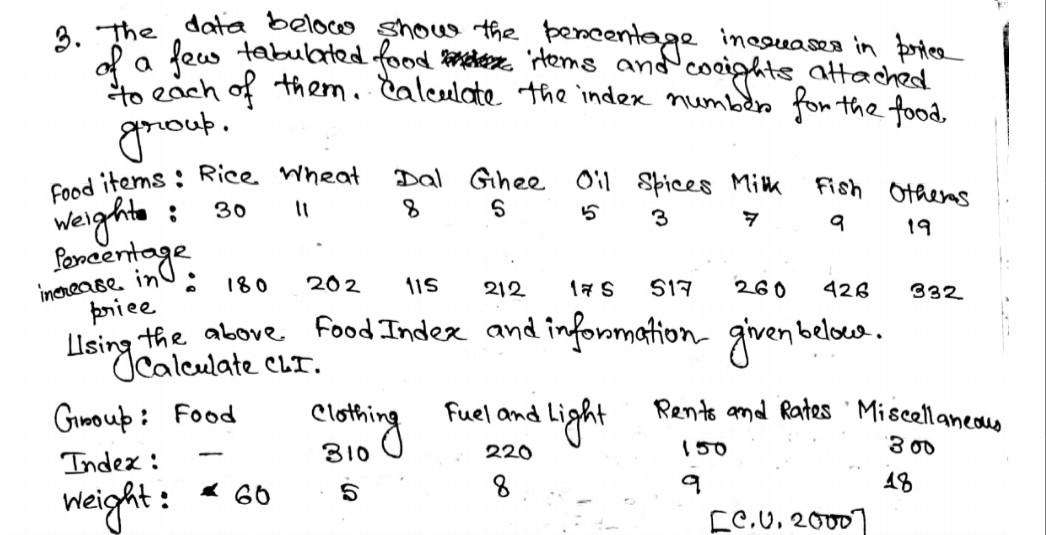 3. The data below shows the percentage increases in price
of a few tabulated food items and weights attached
to each of them. Calculate the index number for the food
group.
Food items : Rice Wheat Dal Ghee Oil Spices Milk Fish Others
Weights : 30 11 8 5 5 3 7 9 19
Percentage
increase in : 180 202 115 212 175 517 260 426 332
price
Using the above Food Index and information given below.
Calculate CLI.
Group : Food Clothing Fuel and Light Rents and Rates Miscellaneous
Index : — 310 220 150 300
Weight : 60 5 8 9 18
[C.U. 2000]